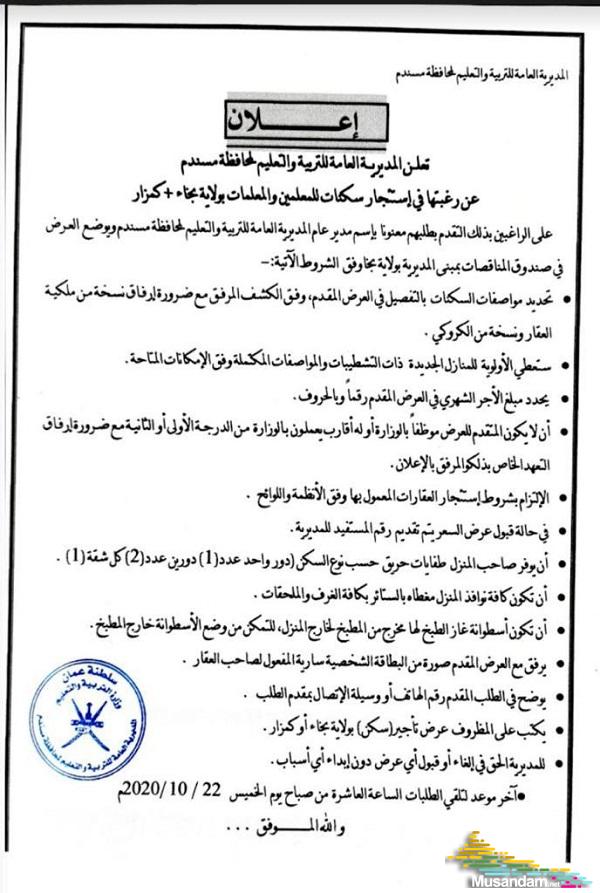 المديرية العامة للتربية والتعليم لمحافظة مسندم
إعـــــلان
تعلن المديرية العامة للتربية والتعليم لمحافظة مسندم
عن رغبتها في إستئجار سكنات للمعلمين والمعلمات بولاية بخاء + كمزار
على الراغبين بذلك التقدم بطلبهم معنونا بإسم مدير عام المديرية العامة للتربية والتعليم لمحافظة مسندم ويوضع العرض
في صندوق المناقصات بمبنى المديرية بولاية بخا وفق الشروط الآتية:–
• تحديد مواصفات السكنات بالتفصيل في العرض المقدم، وفق الكشف المرفق مع ضرورة إرفاق نسخة من ملكية
العقار ونسخة من الكروكي .
• ستعطي الأولوية للمنازل الجديدة ذات التشطيبات والمواصفات المكتملة وفق الإمكانات المتاحة.
• يحدد مبلغ الأجر الشهري في العرض المقدم رقماً وبالحروف.
• أن لا يكون المتقدم للعرض موظفاً بالوزارة أو له أقارب يعملون بالوزارة من الدرجة الأولى أو الثانية مع ضرورة إرفاق
التعهد الخاص بذلك والمرفق بالإعلان.
• الإلتزام بشروط إستئجار العقارات المعمول بها وفق الأنظمة واللوائح .
• في حالة قبول عرض السعر يتم تقديم رقم المستفيد للمديرية.
• أن يوفر صاحب المنزل طفايات حريق حسب نوع السكن (دور واحد عدد(1) دورين عدد(2) كل شقة (1) .
• أن تكون كافة نوافذ المنزل مغطاه بالستائر بكافة الغرف والملحقات .
• أن تكون أسطوانة غاز الطبخ لها مخرج من المطبخ لخارج المنزل، للتمكن من وضع الأسطوانة خارج المطبخ.
• يرفق مع العرض المقدم صورة من البطاقة الشخصية سارية المفعول لصاحب العقار .
• يوضح في الطلب المقدم رقم الهاتف أو وسيلة الإتصال بمقدم الطلب .
• يكتب على المظروف عرض تأجير (سكن) بولاية بخاء أو كمزار .
• للمديرية الحق في إلغاء أو قبول أي عرض دون إبداء أي أسباب.
• آخر موعد لتلقي الطلبات الساعة العاشرة من صباح يوم الخميس 22 / 10 /2020م
والله المـــوفق ...
سلطنة عمان
وزارة التربية والتعليم
المديرية العامة للتربية والتعليم لمحافظة مسندم
Musandam.net